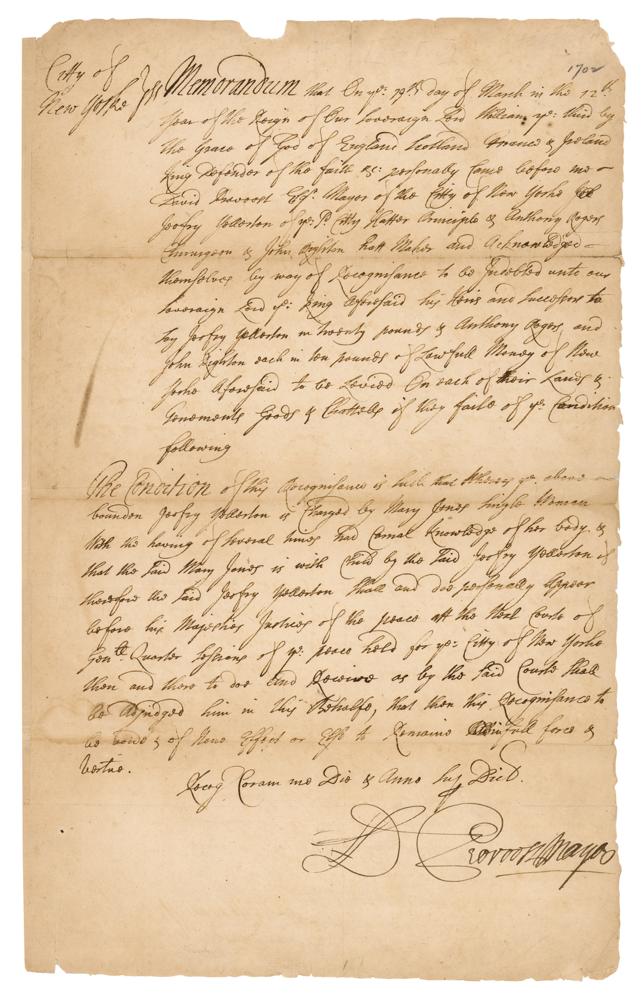 1702
Citty of
New Yorke } ss
Memorandum that On ye: 19th day of March in the 12th
year of the Reign of Our Sovereign Lord William ye: third by
the Grace of God of England Scotland France & Ireland
King Defender of the faith &c: personally Came before me
David Provoost Esqr. Mayor of the Citty of New Yorke
Jeofry Yellerton of ye: sd. Citty Hatter Principle & Anthony Rogers
Chirurgeon & John Dighton hatt Maker and Acknowledged
themselves by way of Recognisance to be Indebted unto our
Sovereign Lord ye: King Aforesaid his Heirs and Successors to
say Jeofry Yellerton in twenty pounds & Anthony Rogers and
John Dighton each in ten pounds of Lawfull Money of New
Yorke Aforesaid to be Levied On each of their Lands &
Tenements Goods & Chattells if they faile of ye: Condition
following
The Condition of this Recognisance is such that Whereas ye: above
bounden Jeofry Yellerton is Charged by Mary Jones Single Woman
With the having of Several times had Carnal Knowledge of her body &
that the said Mary Jones is with Child by the said Jeofry Yellerton if
therefore the said Jeofry Yellerton Shall and doe personally Appear
before his Majesties Justices of the peace att the Next Courte of
Genll. Quarter Sessions of ye: peace held for ye: Citty of New Yorke
then and there to doe and Receive as by the said Courte Shall
be Adjudged him in this Behalfe, that then this Recognisance to
be voide & of None Effect or Else to Remaine in full force &
Vertue.
Recog Coram me Die & Anno Sup Dict.
D Provoost Mayor